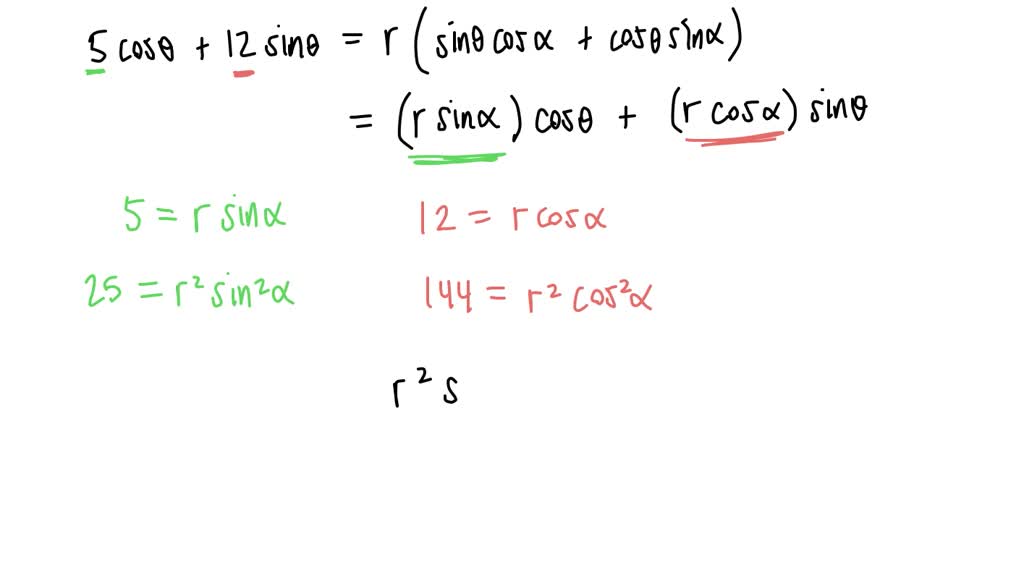 5 cosθ + 12 sinθ = r (sinθ cosα + cosθ sinα)
= (r sinα) cosθ + (r cosα) sinθ
5 = r sinα 12 = r cosα
25 = r² sin²α 144 = r² cos²α
r² s